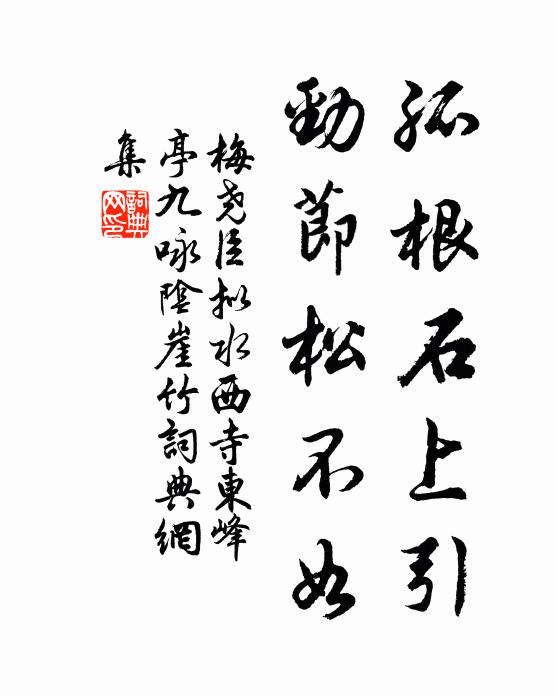 孤根石上引
勁節松不如
梅堯臣擬水西寺東峰
亭九咏陰崖竹詞典網
集
詞典網印